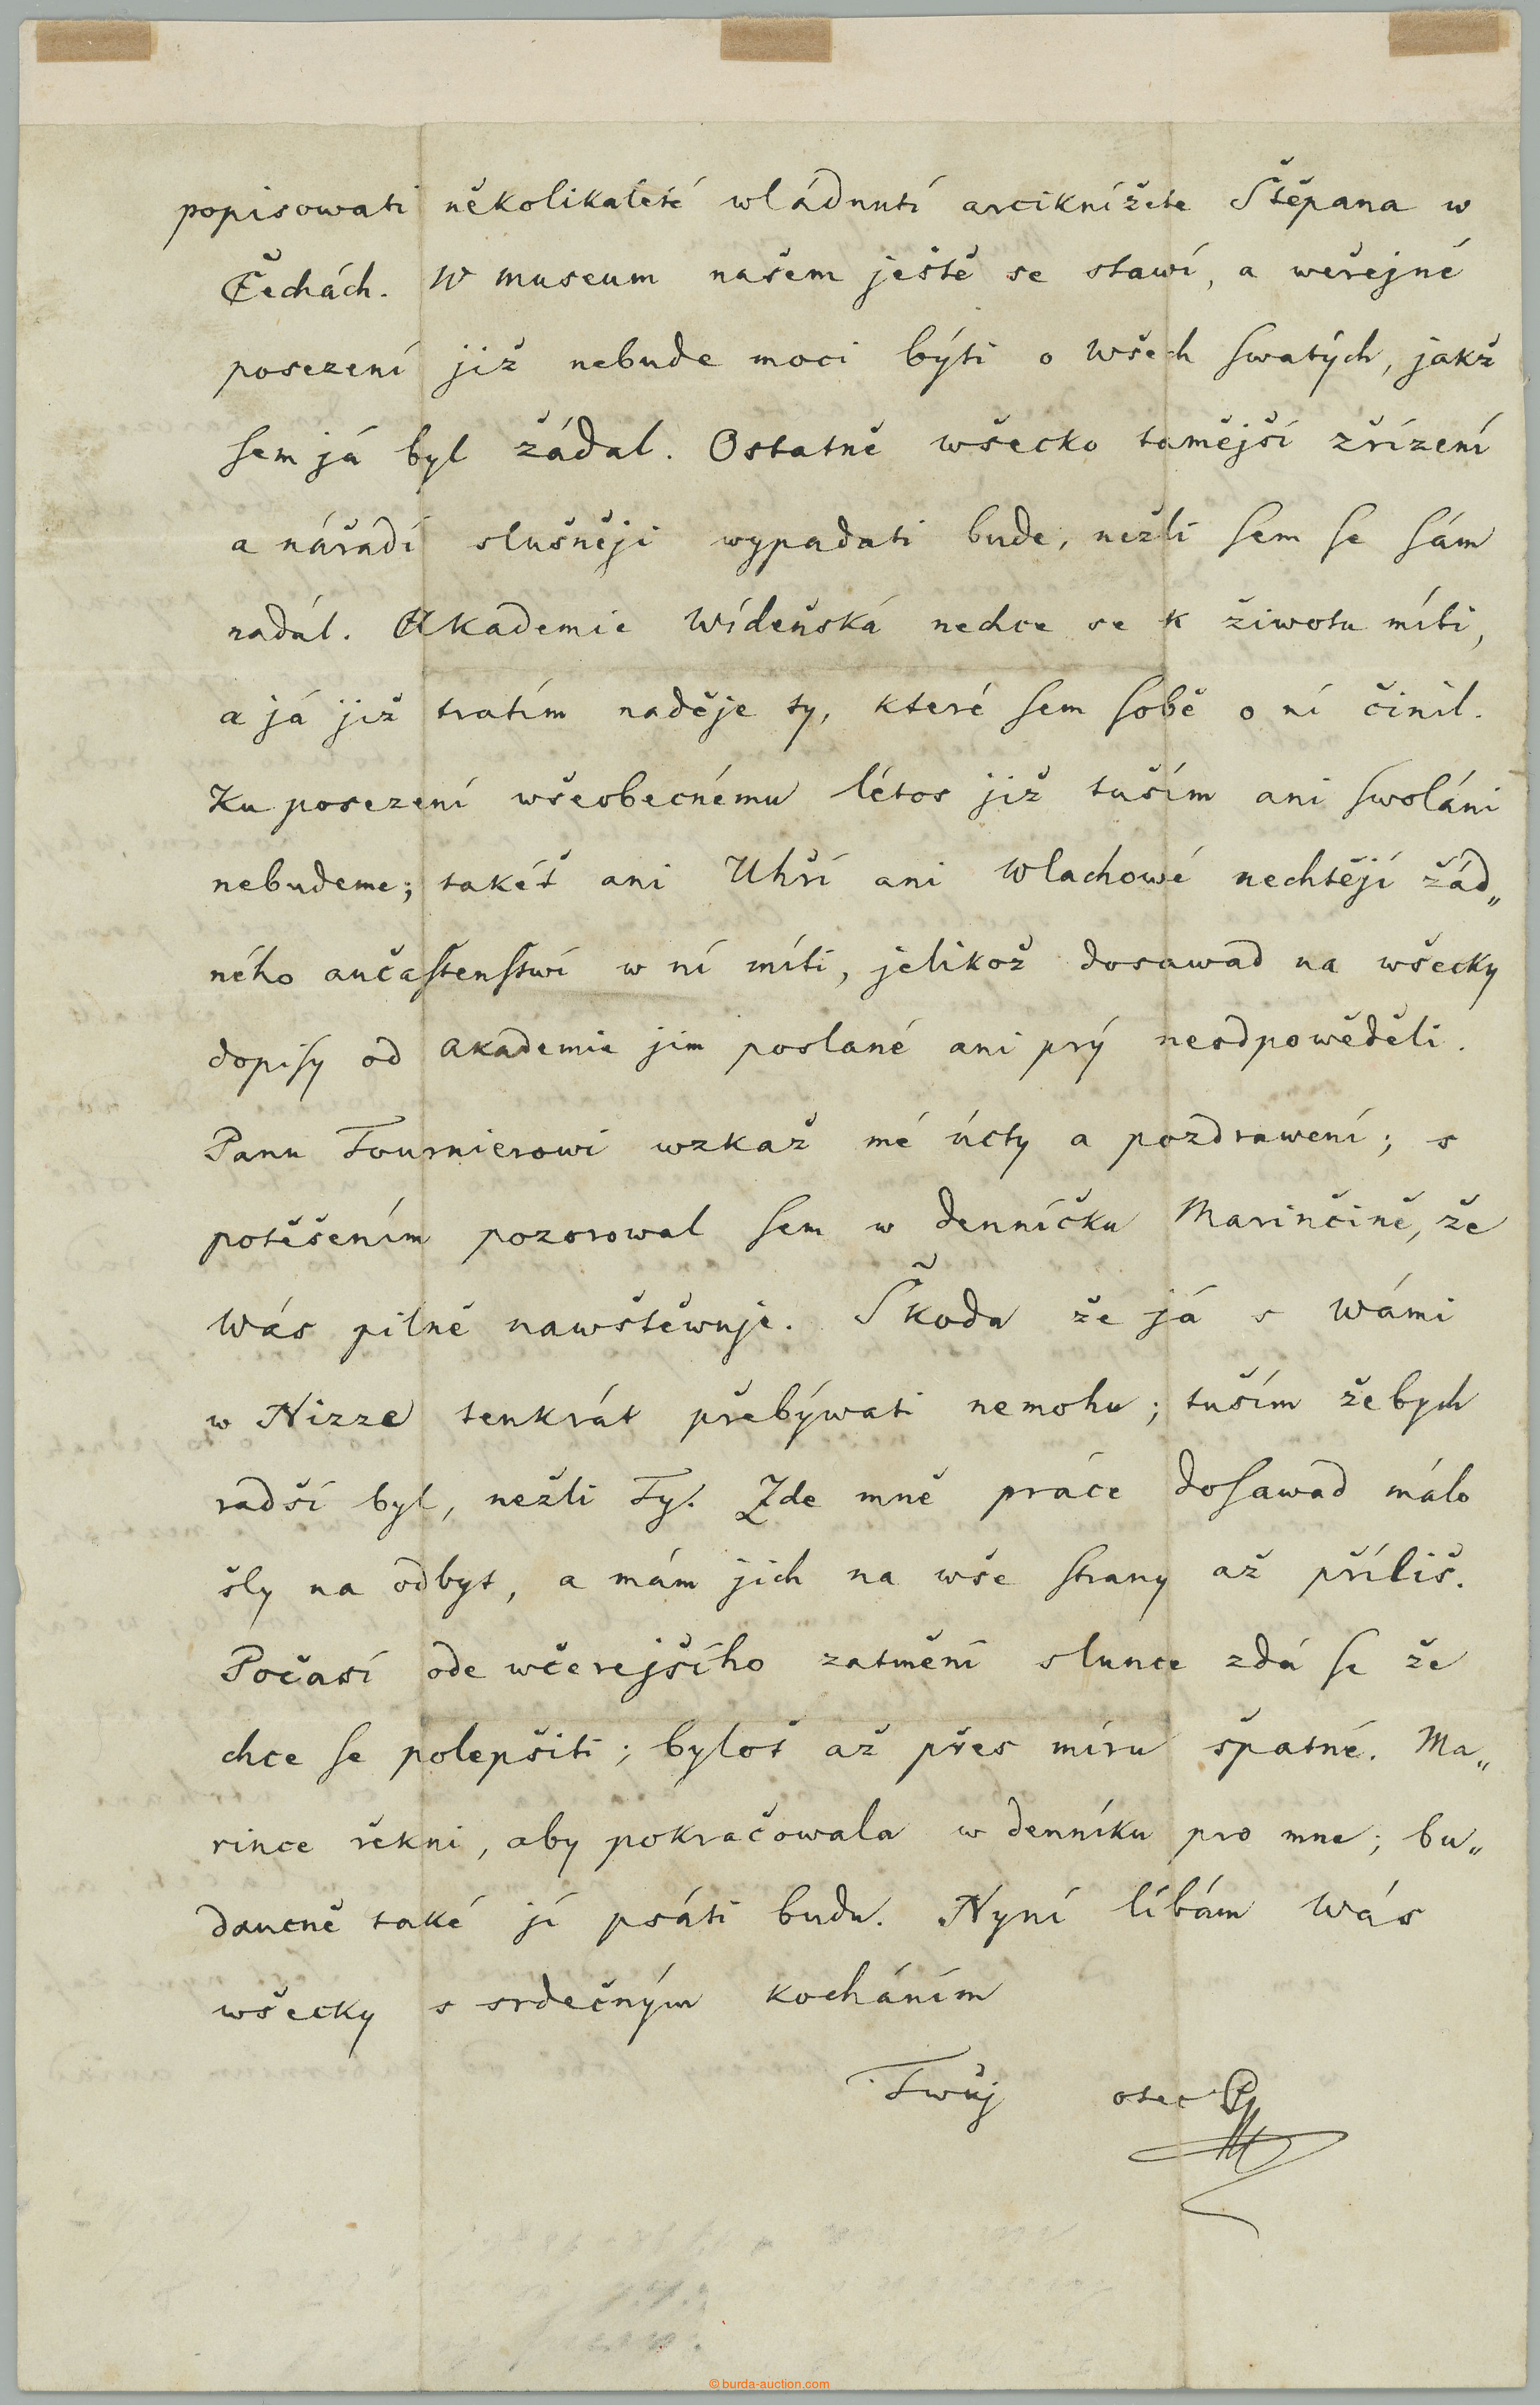 popisowati několikaleté wládnutí arciknížete Štěpana w
Čechách. W museum našem ještě se stawí, a weřejné
posezení již nebude moci býti o Wšech swatých, jakž
sem já byl žádal. Ostatně wšecko tamější zřízení
a nářadí slušněji wypadati bude, nežli sem se sám
nadál. Akademie Wídeňská nechce se k žiwotu míti,
a já již tratím naděje ty, které sem sobě o ní činil.
Ku posezení wšeobecnému létos již tuším ani swoláni
nebudeme; takéť ani Uhři ani Wlachowé nechtějí žád„
ného aučastenstwí w ní míti, jelikož dosawad na wšecky
dopisy od akademie jim poslané ani prý neodpowěděli.
Panu Fournierowi wzkaž mé úcty a pozdrawení; s
potěšením pozorowal sem w denníčku Marinčině, že
Wás pilně nawštěwuje. Škoda že já s Wámi
w Nizze tenkrát přebýwati nemohu; tuším že bych
radší byl, nežli Ty. Zde mně práce dosawad málo
šly na odbyt, a mám jich na wše strany až příliš.
Počasí ode wčerejšího zatmění slunce zdá se že
chce se polepšiti; byloť až přes míru špatné. Ma„
rince řekni, aby pokračowala w denníku pro mne; bu„
daucně také jí psáti budu. Nyní líbám Wás
wšecky s srdečným kocháním
Twůj otec P
© burda-auction.com